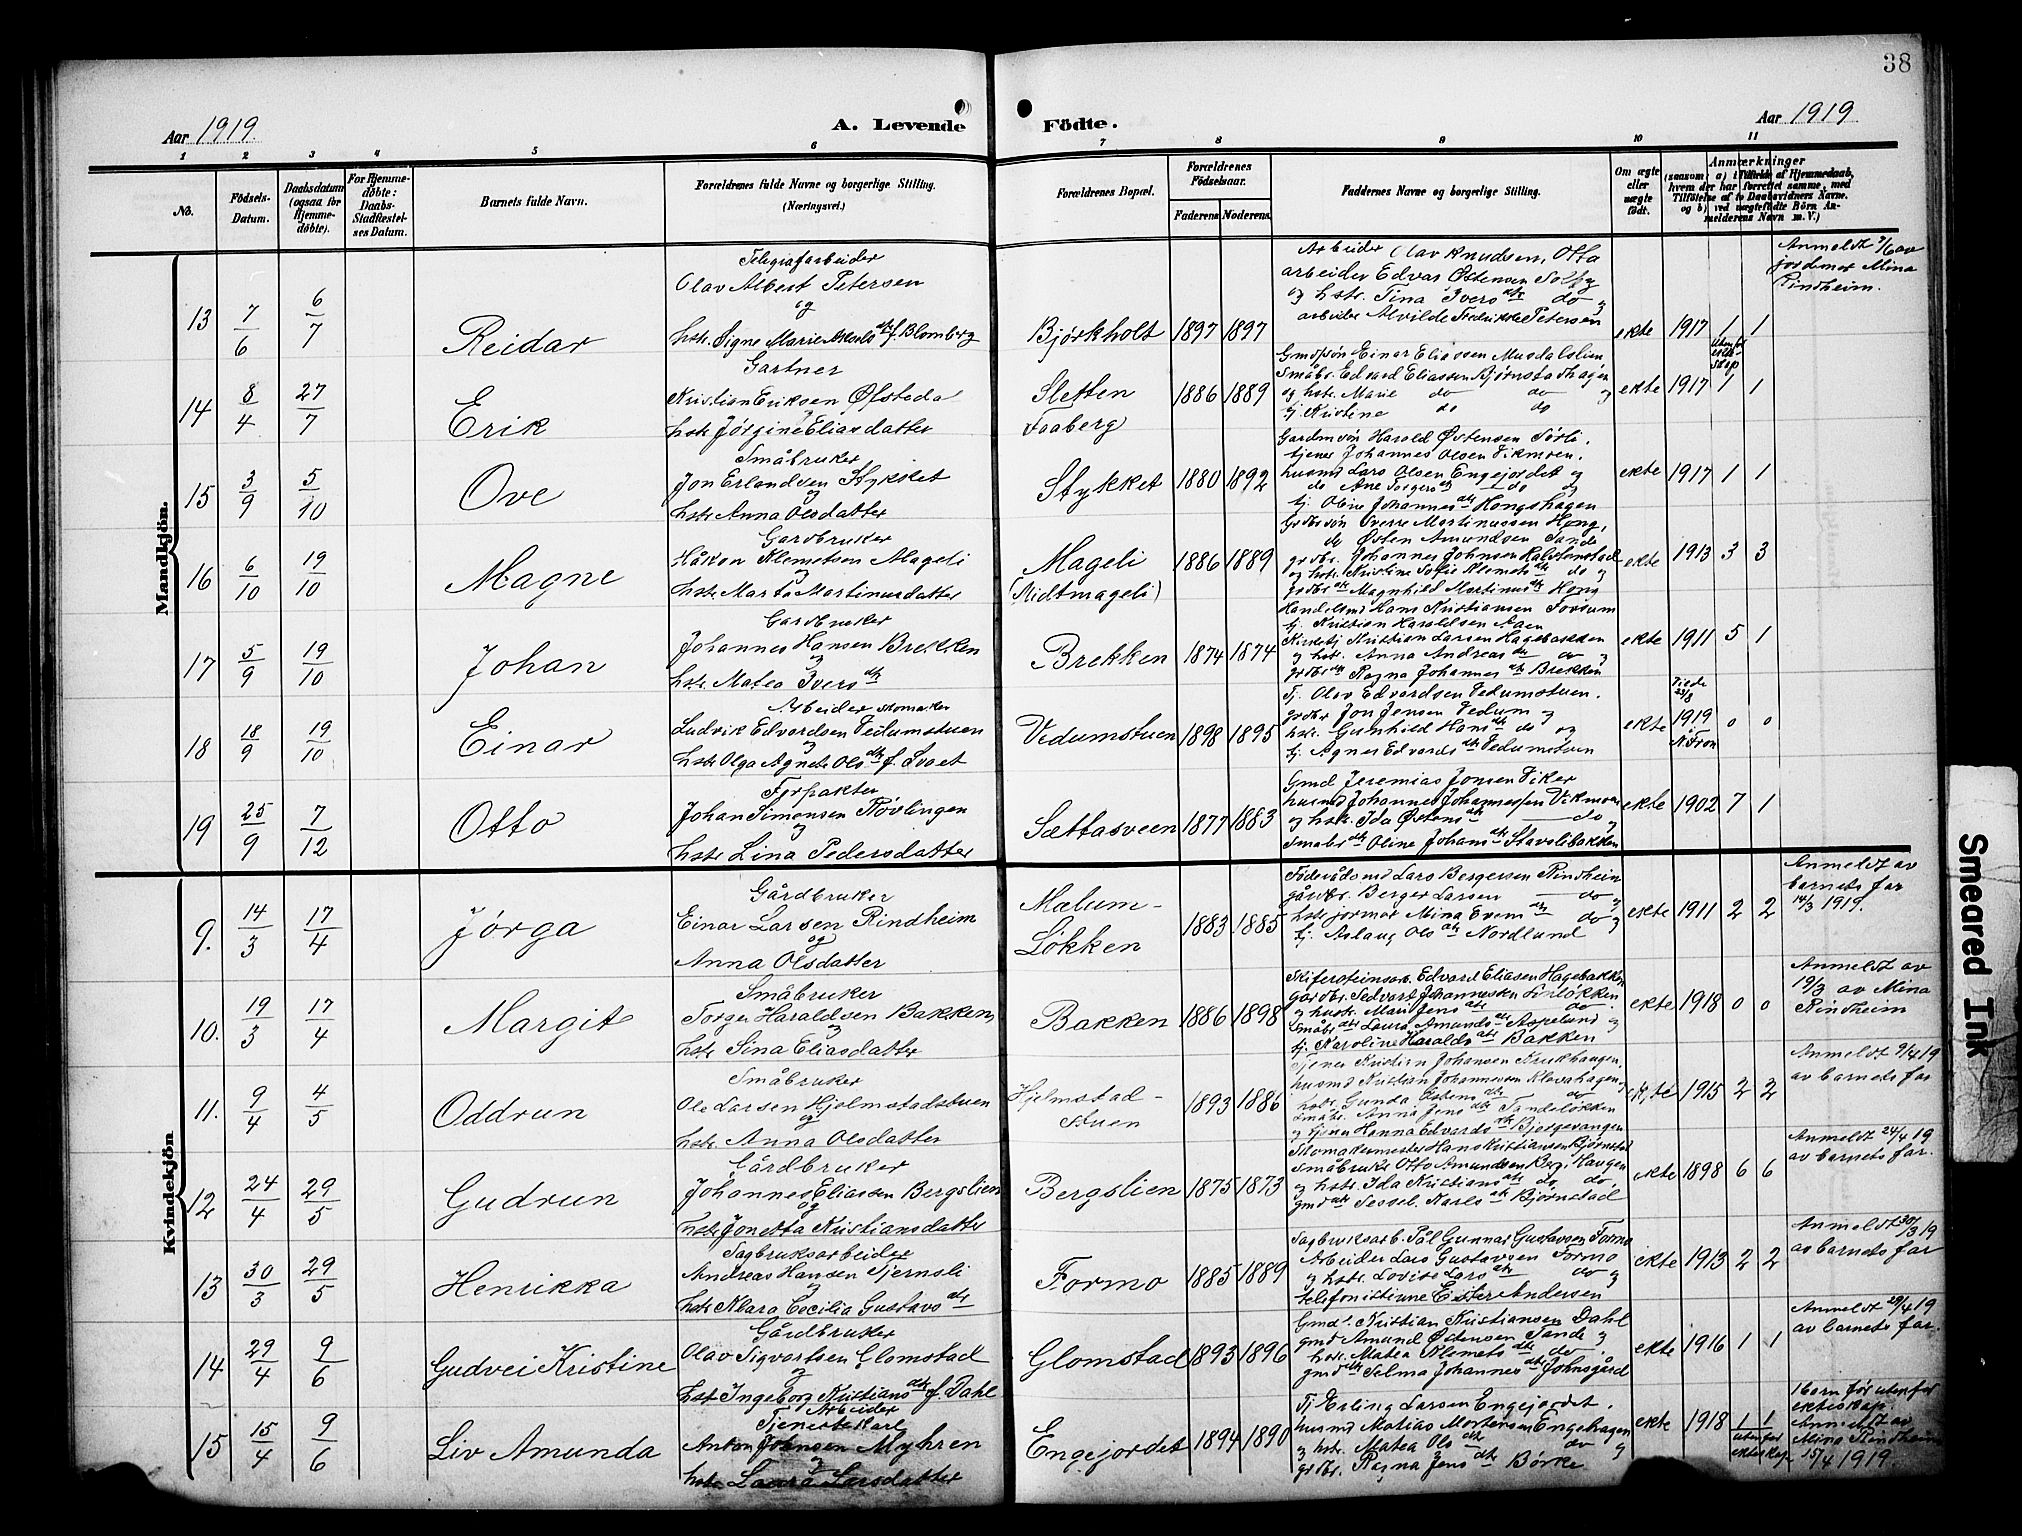 38
Aar 1919.
A. Levende Födte.
Aar 1919
1 2 3 4 5 6 7 8 9 10 11
No.
Födsels-Datum.
Daabsdatum (ogsaa for Hjemme-döbte).
For Hjemme-döbte: Daabs-Stadfæstel-ses Datum.
Barnets fulde Navn.
Forældrenes fulde Navne og borgerlige Stilling. (Næringsvei.)
Forældrenes Bopæl.
Forældrenes Födselsaar.
Faderens. Moderens.
Faddernes Navne og borgerlige Stilling.
Om ægte eller uægte födt.
Anmærkninger
(saasom: a) i Tilfælde af Hjemmedaab, hvem der har forrettet samme, med Tilföielse af to Daabsvidners Navne. og b) ved uægtefödte Börn An-melderens Navn m. V.)
Mandkjön.
13 7/6 6/7 Reidar
Telegrafarbeider
Olav Albert Petersen
og
hstr. Signe Marie Aksels dtr f. Blomberg
Bjørkholt 1897 1897
Arbeider Olav Knudsen, Otta
arbeider Edvar Østensen Solbg
og hstr. Tina Ivers dtr do og
arbeider Alvilde Fredrikke Petersen
ekte 1917 1 1
Anmeldt 7/6 av
jordemor Mina
Rindheim.
14 8/4 27/7 Erik
Gartner
Kristian Eriksen Øfstedal
hstr Jørgine Eliasdatter
Sletten
Faaberg
1886 1889
Gmdssøn Einar Eliassen Musdalslien
Småbr. Edvard Eliassen Bjørnstadhagen
og hstr. Marie do do og
tj. Kristine do do
ekte 1917 1 1
Utenfor
ekte-
skap
15 3/9 5/10 Ove
Småbruker
Jon Erlandsen Stykket
og
hstr Anna Olsdatter
Stykket 1880 1892
Gardmsøn Harald Østensen Sørli.
tjener Johannes Olsen Vikmoen.
husmd Lars Olsen Engejordet og
do Ane Torgersdtr do og
tj. Oline Johannesdtr Hongshagen
ekte 1917 1 1
16 6/10 19/10 Magne
Gardbruker
Håkon Klemetsen Mageli
og
hstr Marta Martinusdatter
Mageli
(Midtmageli)
1886 1889
Grdbrsøn Sverre Martinussen Hong,
do Østen Amundsen Sande
grdbr. Johannes Johnsen Kalstonstad
og hstr. Kristine Sofie Klemetsdtr do og
grdbr dtr Magnhild Martinusdtr Hong
ekte 1913 3 3
17 5/9 19/10 Johan
Gardbruker
Johannes Hansen Brekken
og
hstr Matea Ivers dtr
Brekken 1874 1874
Handelsmd Hans Kristiansen Forsum
tj. Kristian Haraldsen Aaen
Kirketj. Kristian Larsen Hagebakken
og hstr. Anna Andreas dtr do og
grdbr dtr Ragna Johannes dtr Brekken
ekte 1911 5 1
18 18/9 19/10 Einar
Arbeider skomaker
Ludvik Edvardsen Vedumstuen
og
hstr Olga Agnete Ols dtr f. Svoet
Vedumstuen 1898 1895
Tj. Olav Edvardsen Vedumstuen.
grdbr Jon Jensen Vedum og
hstr. Gunhild Hans dtr do og
tj. Agnes Edvards dtr Vedumstuen
ekte
Viede
23/8
1919
N. Fron
0 0
19 25/9 7/12 Otto
Forpakter
Johan Simensen Røvlingen
og
hstr Lina Pedersdatter
Sættasveen 1877 1883
Gmd Jeremias Jonsen Viker
husmd Johannes Johannessen Vikmoen
og hstr. Ida Østens dtr do og
Småbr dtr Oline Johans dtr Stavslibakken
ekte 1902 7 1
Kvindekjön
9. 14/3 17/4 Jørga
Gårdbruker
Einar Larsen Rindheim
og
Anna Olsdatter
Mælum-
Løkken
1883 1885
Føderådsmd Lars Bergersen Rindheim
gårdbr. Berger Larsen do
hstr jormor Mina Evens dtr do og
tj. Aslaug Ols dtr Nordlund
ekte 1911 2 2
Anmeldt av
barnets far
14/3 1919.
10. 19/3 17/4 Margit
Småbruker
Torger Haraldsen Bakken,
og
hstr Sina Eliasdatter
Bakken 1886 1898
Skifersteinsarb. Edvard Eliasen Hagebakken
gårdbr. Sedvart Johannesen Lisløkken
og hustr. Mari Jens dtr do
Småbr dtr Laura Amunds dtr Aspelund og
tj. Karoline Haralds dtr Bakken
ekte 1918 0 0
Anmeldt av
19/3 av Mina
Rindheim
11. 9/4 4/5 Oddrun
Småbruker
Ole Larsen Hjelmstadstuen
og
hstr. Anna Olsdatter
Hjelmstad-
stuen
1893 1886
Tjener Kristian Johansen Krukhaugen,
husmd Kristian Johannesen Klevahagen,
hstr. Gunda Østens dtr do
småbr. Anna Jens dtr Sandeløkken
og tjener Hanna Edvards dtr Bjørgevangen
ekte 1915 2 2
Anmeldt 9/4 19
av barnets far
12 24/4 29/5 Gudrun
Gårdbruker
Johannes Eliassen Bergslien
og
hstr Jonetta Kristiansdatter
Bergslien 1875 1873
Skomakermester Hans Kristiansen Bjørnstad
Småbruker Otto Amundsen Berg, Haugen
og hstr. Ida Kristians dtr do do,
gmd dtr Sessel Karls dtr Bjørnstad
ekte 1898 6 6
Anmeldt 24/4 19
av barnets far.
13 30/3 29/5 Henrikka
Sagbruksarbeider
Andreas Hansen Tjernsli
og
hstr Klara Cecilia Gustavs dtr
Formo 1885 1889
Sagbruksarb. Pål Gunnar Gustavsen Formo
Arbeider Lars Gustavsen Formo
og hstr. Lovise Lars dtr do og
telefonistinne Ester Andersen
ekte 1913 2 2
Anmeldt 30/3 19
av barnets far
14 29/4 9/6 Gudvei Kristine
Gårdbruker
Olav Sigvartsen Glomstad
og
hstr Ingeborg Kristians dtr f. Dahl
Glomstad 1893 1896
Gmd. Kristian Kristiansen Dahl
gmd Amund Østensen Sande og
hstr. Matea Klemets dtr do og
gmd dtr Selma Johannes dtr Johnsgård
ekte 1916 1 1
Anmeldt 29/4 19
av barnets far.
15 15/4 9/6 Liv Amunda
Arbeider
Tjenestekarl
Anton Johnsen Myhren
og
hstr Laura Larsdatter
Engejordet 1894 1890
Tj Erling Larsen Engejordet.
husmd Matias Mortensen Engehagen
og hstr. Matea Ols dtr do og
grdbr. Ragna Jens dtr Børke
ekte 1918 1 1
utenfor
ekteskap
1 barn før utenfor
ekteskap.
Anmeldt av
Mina Rindheim
15/4 1919.
Smeared Ink